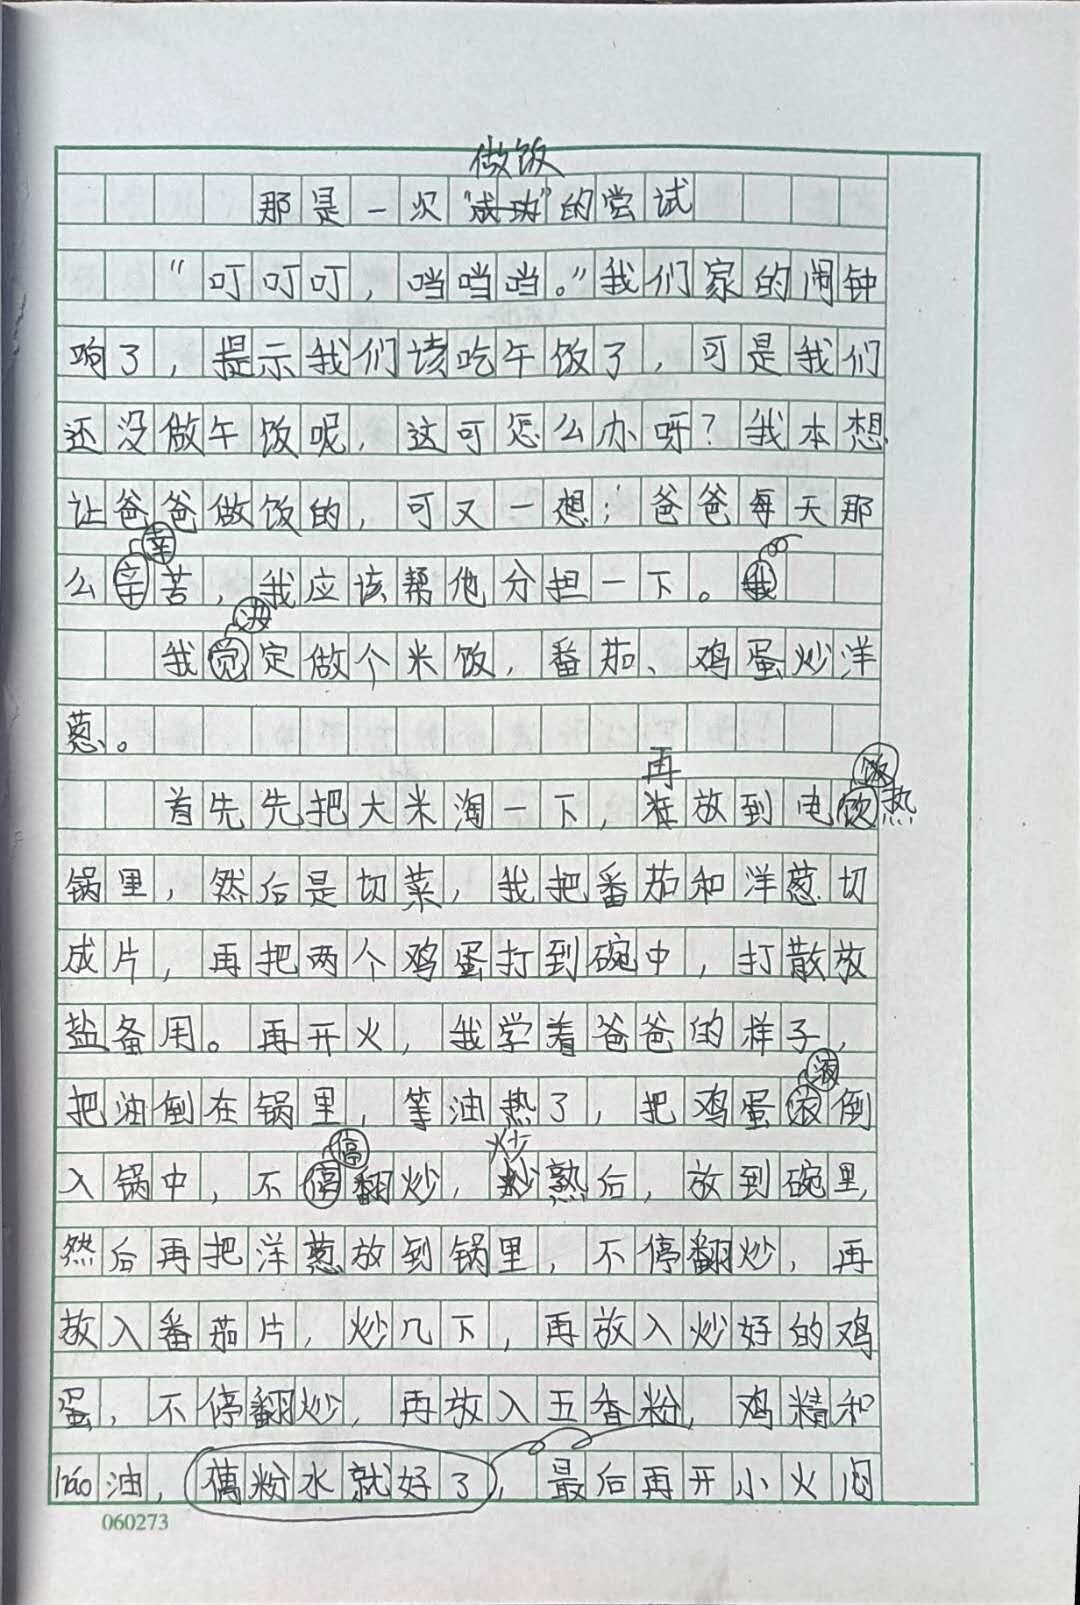 做饭
那是一次“成功”的尝试
“叮叮叮，当当当。”我们家的闹钟
响了，提示我们该吃午饭了，可是我们
还没做午饭呢，这可怎么办呀？我本想
让爸爸做饭的，可又一想；爸爸每天那
辛
么辛苦，我应该帮他分担一下。我
决
我定做个米饭，番茄、鸡蛋炒洋
葱。
再 饭
首先先把大米淘一下，放到电饭热
锅里，然后是切菜，我把番茄和洋葱切
成片，再把两个鸡蛋打到碗中，打散放
盐备用。再开火，我学着爸爸的样子，
液
把油倒在锅里，等油热了，把鸡蛋液倒
停 炒
入锅中，不停翻炒，炒熟后，放到碗里，
然后再把洋葱放到锅里，不停翻炒，再
放入番茄片，炒几下，再放入炒好的鸡
蛋，不停翻炒，再放入五香粉，鸡精和
háo油，粉水就好了，最后再开小火闷
060273